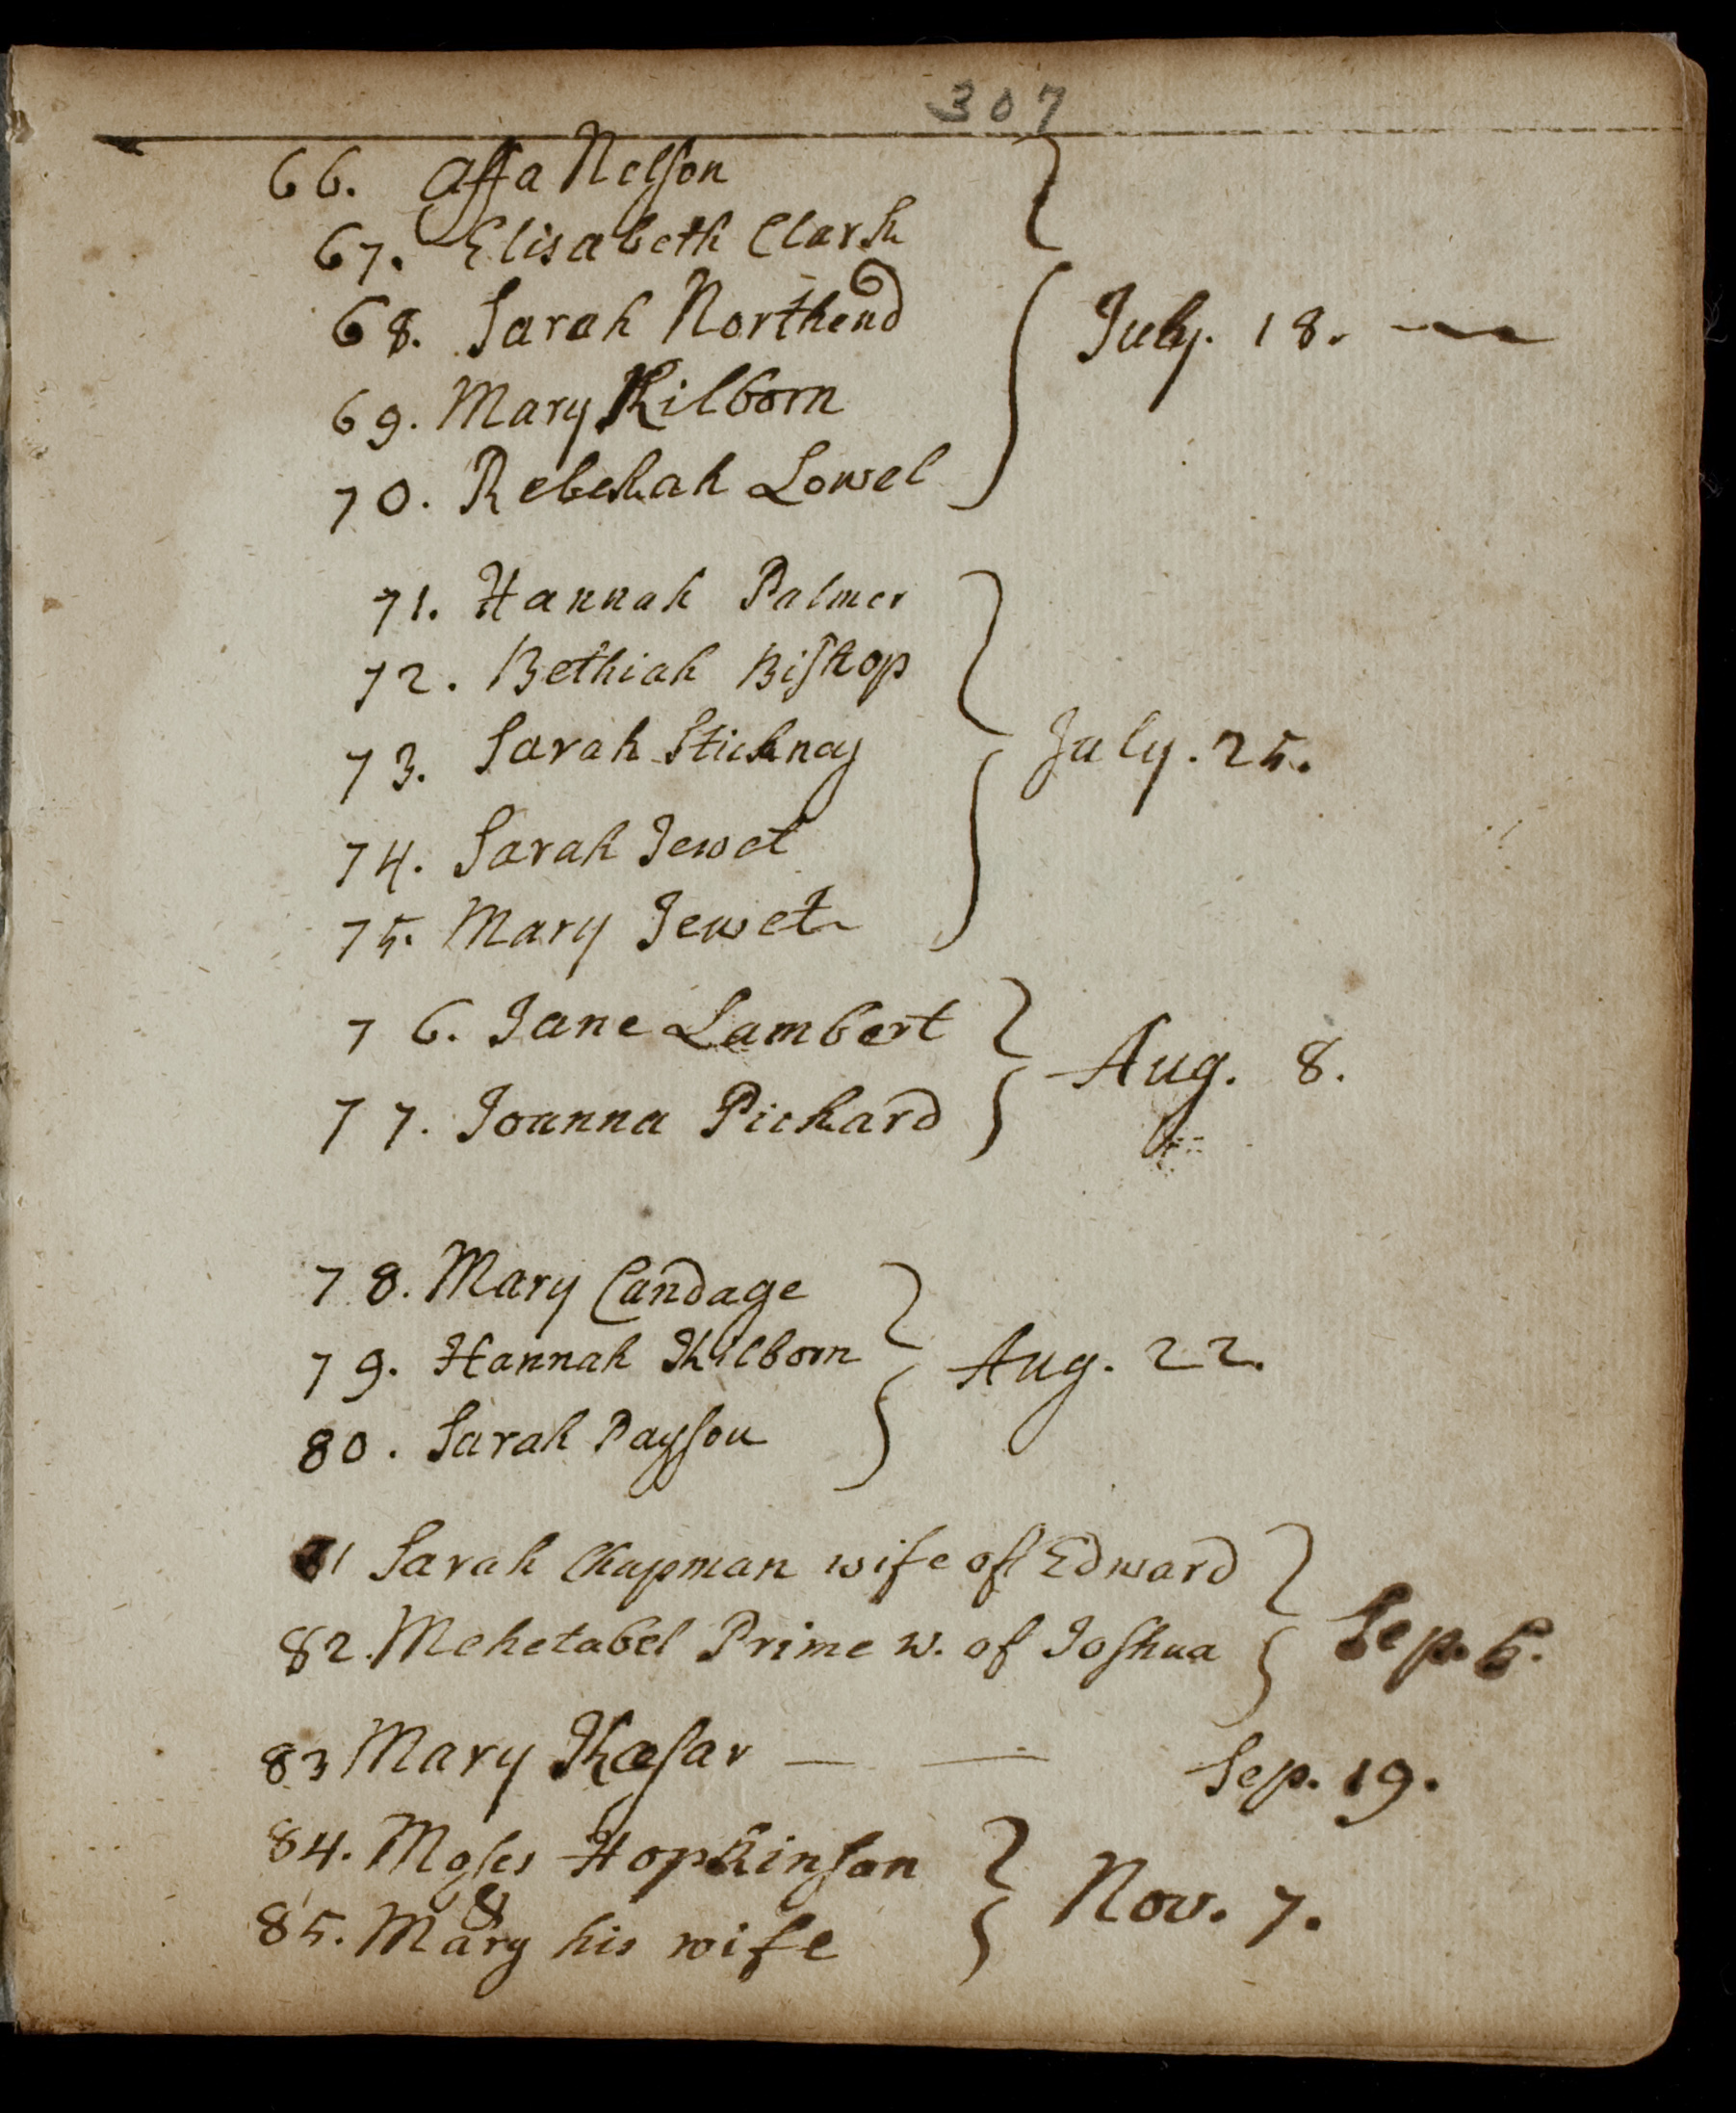 307
66. Assa Nelson
67. Elisabeth Clark
68. Sarah Northend
69. Mary Kilborn
70. Rebekah Lowel
July. 18.
71. Hannah Palmer
72. Bethiah Bishop
73. Sarah Stickney
74. Sarah Jewet
75. Mary Jewet
July. 25.
76. Jane Lambert
77. Joanna Pickard
Aug. 8.
78. Mary Candage
79. Hannah Kilborn
80. Sarah Payson
Aug. 22.
81 Sarah Chapman wife of Edward
82. Mehetabel Prime w. of Joshua
Sep. 5.
83 Mary Kæsar
Sep. 19.
84. Moses Hopkinson
&
85. Mary his wife
Nov. 7.